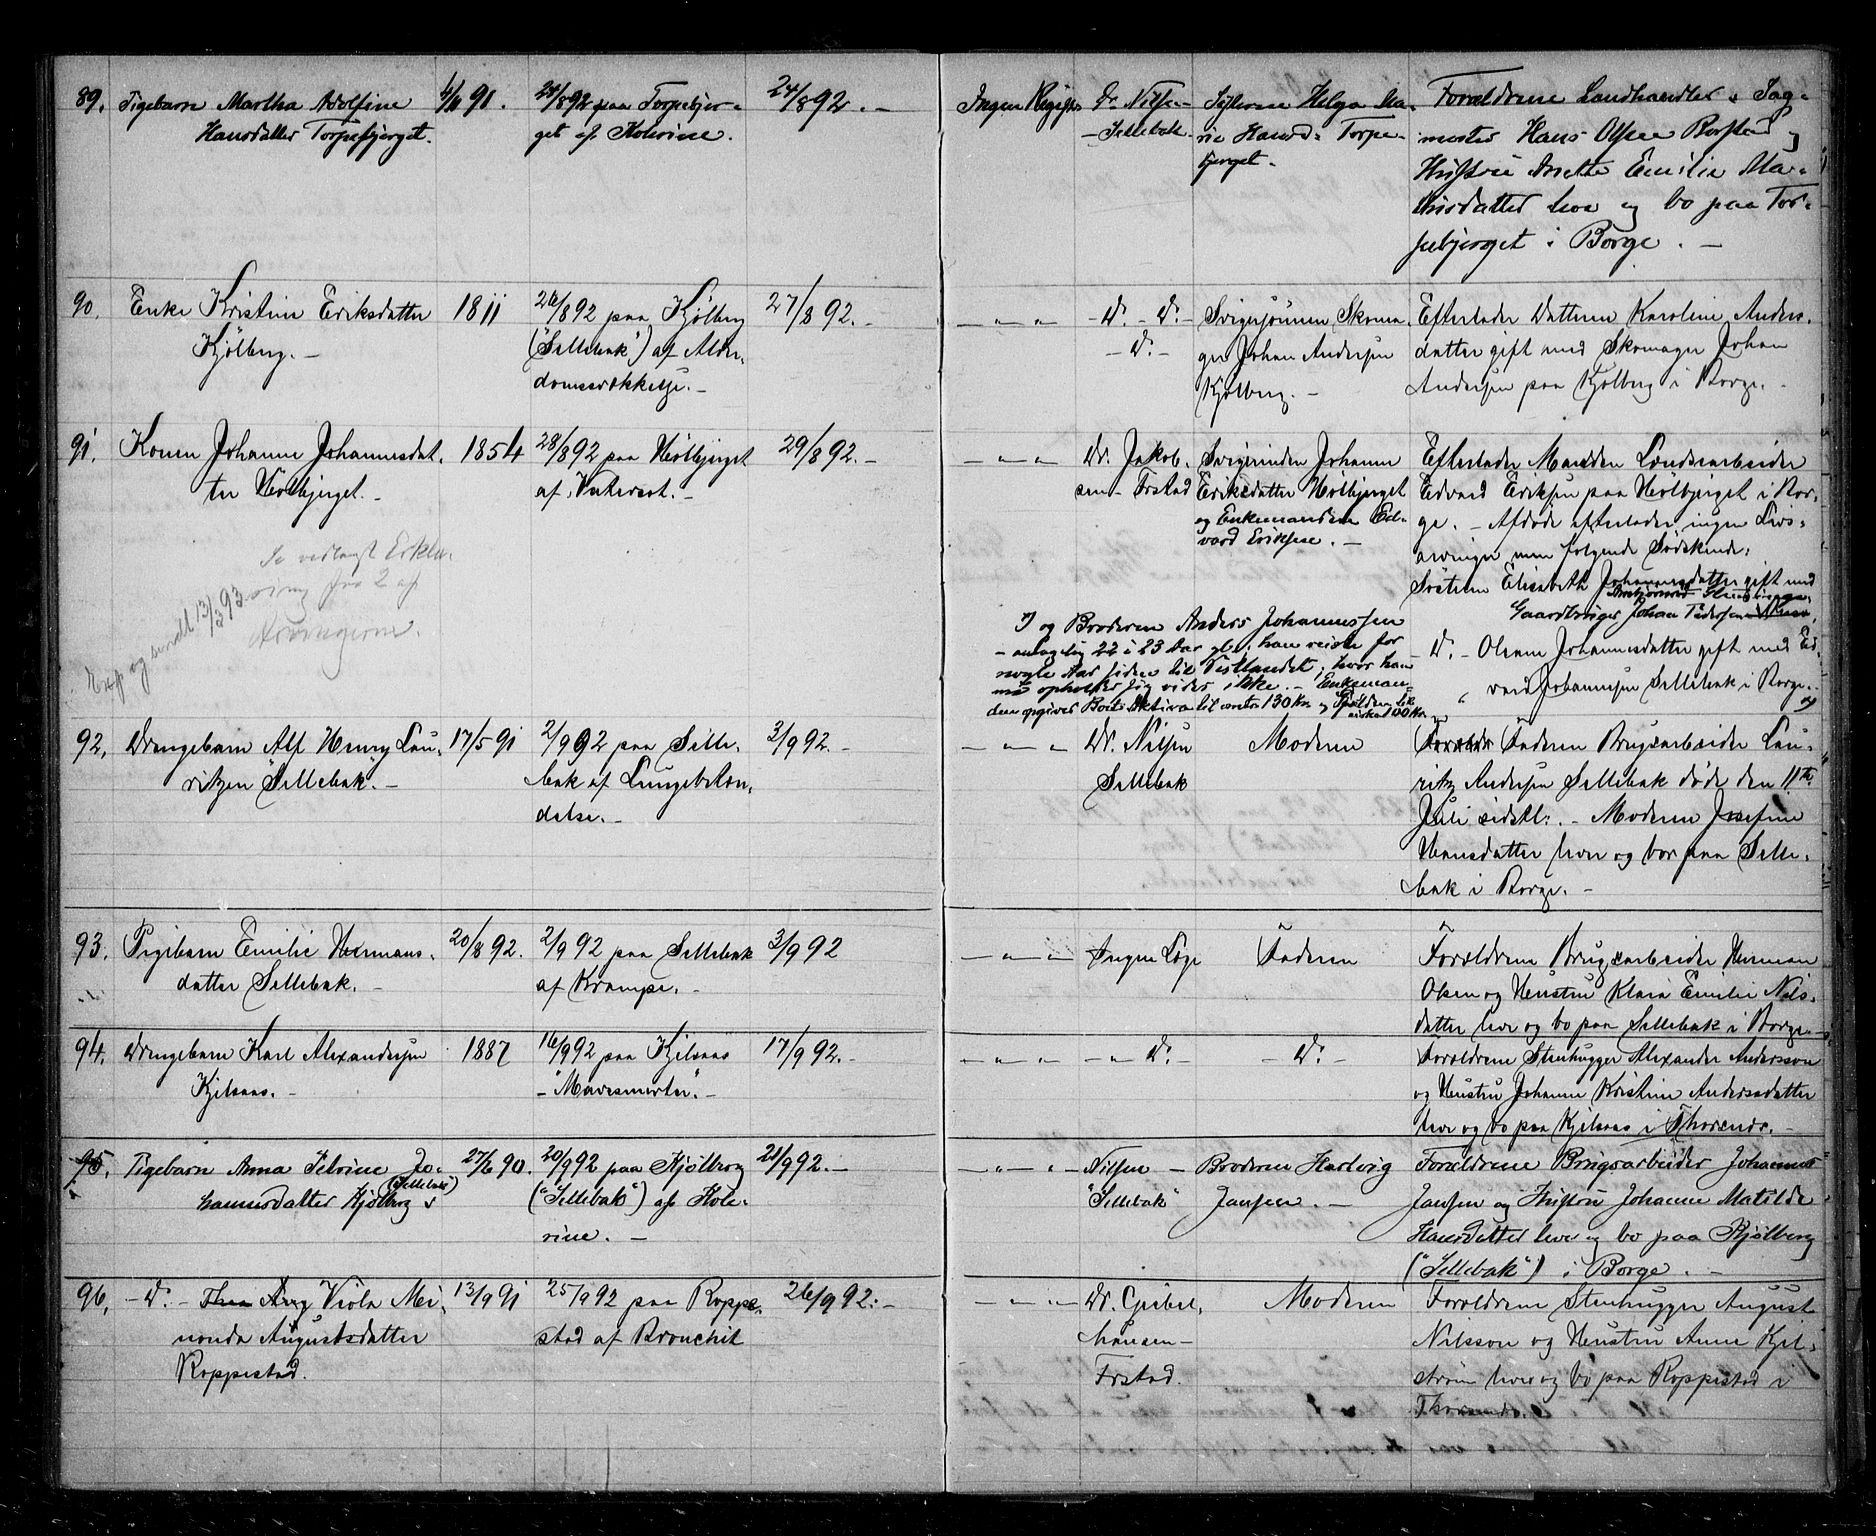 89. Pigebarn Martha Adolfine
Hansdatter Torpebjerget.
91.
24/8 92 paa Torpebjer-
get af Kolerine.
24/8 92. -
Ingen
Dr. Nilsen -
- Sellebak.
Søsteren Helga Ma-
rie Hansd: Torpe-
bjerget.
Forældrene Landhandler &
Hans Olsen
Hustru Anette Emilie Ma-
thisdatter leve og bo paa Tor-
pebjerget i Borge. -
90. Enke Kristine Eriksdatter
Kjølberg. -
1811
26/8 92 paa Kjølberg
("Sellebak") af Alder-
domssvækkelse. -
27/8 92. -
- " - " - D. - D. -
- D. -
Svigersønnen Skoma-
ger Johan Andersen
Kjølberg. -
Efterlader Datteren Karoline Anders-
datter gift med Skomager Johan
Andersen paa Kjølberg i Borge. -
91. Konen Johanne Johannesdat-
ter Hvølbjerget. -
1854
28/8 92 paa Hvølbjerget
af Vatersot. -
29/8 92. -
- " - " -
Dr. Jakob-
sen - Frstad
Svigerinden Johanne
Eriksdatter Hvølbjerget
og Enkemanden Ed-
vard Eriksen. -
Efterlader Manden Landsarbeider
Edvard Eriksen paa Hvølbjerget i Bor-
ge. - Afdøde efterlader ingen Livs-
arvinger men følgende Sødskende:
Søsteren Elisabeth Johannesdatter gift med
Gaardbruger Johan
- D. - Oleane Johannesdatter gift med Ed-
" vard Johannesen Sellebak i Borge.
Se vedlagt Erklæ-
ring fra 2 af
Arvingerne.
Exp og sendt 13/3 93.
og Broderen Anders Johannessen
- antagelig 22 a 23 Aar gl., han reiste for
nogle Aar siden til Vestlandet, hvor han
nu opholder sig vides ikke. - Enkeman-
den opgiver Boets Aktiva til omtr 130 Kr. og Gjælden
100 Kr.
92. Drengebarn Alf Henry Lau-
ritzen "Sellebak". -
17/5 91
2/9 92 paa Selle-
bak af Lungebetæn-
delse. -
3/9 92. -
- " - " -
Dr. Nilsen
Sellebak
Moderen
Faderen Brugsarbeider Lau-
ritz Andersen Sellebak døde den 11te
Juli sidstl: . - Moderen Josefine
Hansdatter lever og bor paa Selle-
bak i Borge. -
93. Pigebarn Emilie Hermans-
datter Sellebak. -
20/8 92.
2/9 92 paa Sellebak
af Krampe. -
3/9 92
- " - " -
Ingen Læge
Faderen
Forældrene Brugsarbeider Herman
Olsen og Hustru Klara Emilie Nils-
datter leve og bo paa Sellebak i Borge. -
94. Drengebarn Karl Alexandersen
Kjilsaas. -
1887
16/9 92 paa Kjilsaas
- "Mavesmerter". -
17/9 92. -
- " - " - - " - D. -
- D. -
Forældrene Stenhugger Alexander Andersson
og Hustru Johanne Kristine Andersdatter
leve og bo paa Kjilsaas i Thorsnæs. -
95. Pigebarn Anna Petrine Jo-
hannesdatter Kjølberg
(Sellebak)
27/6 90.
20/9 92 paa Kjølberg
("Sellebak") af Kole-
rine. -
21/9 92. -
- " - " - Nilsen -
"Sellebak"
Broderen Hartvig
Jansen. -
Forældrene Brugsarbeider Johannes
Jansen og Hustru Johanne Matilde
Hansdatter leve og bo paa Kjølberg
("Sellebak") i Borge. -
96. - D. - Viola Mi-
nonda Augustsdatter
Roppestad.
13/9 91
25/9 92 paa Roppe-
stad af Bronchit
26/9 92. -
- " - " -
Dr. Gisbel-
hausen -
Frstad.
Moderen
Forældrene Stenhugger August
Nilsson og Hustru Anna Kjel-
strøm leve og bo paa Roppestad i
Thorsnæs.